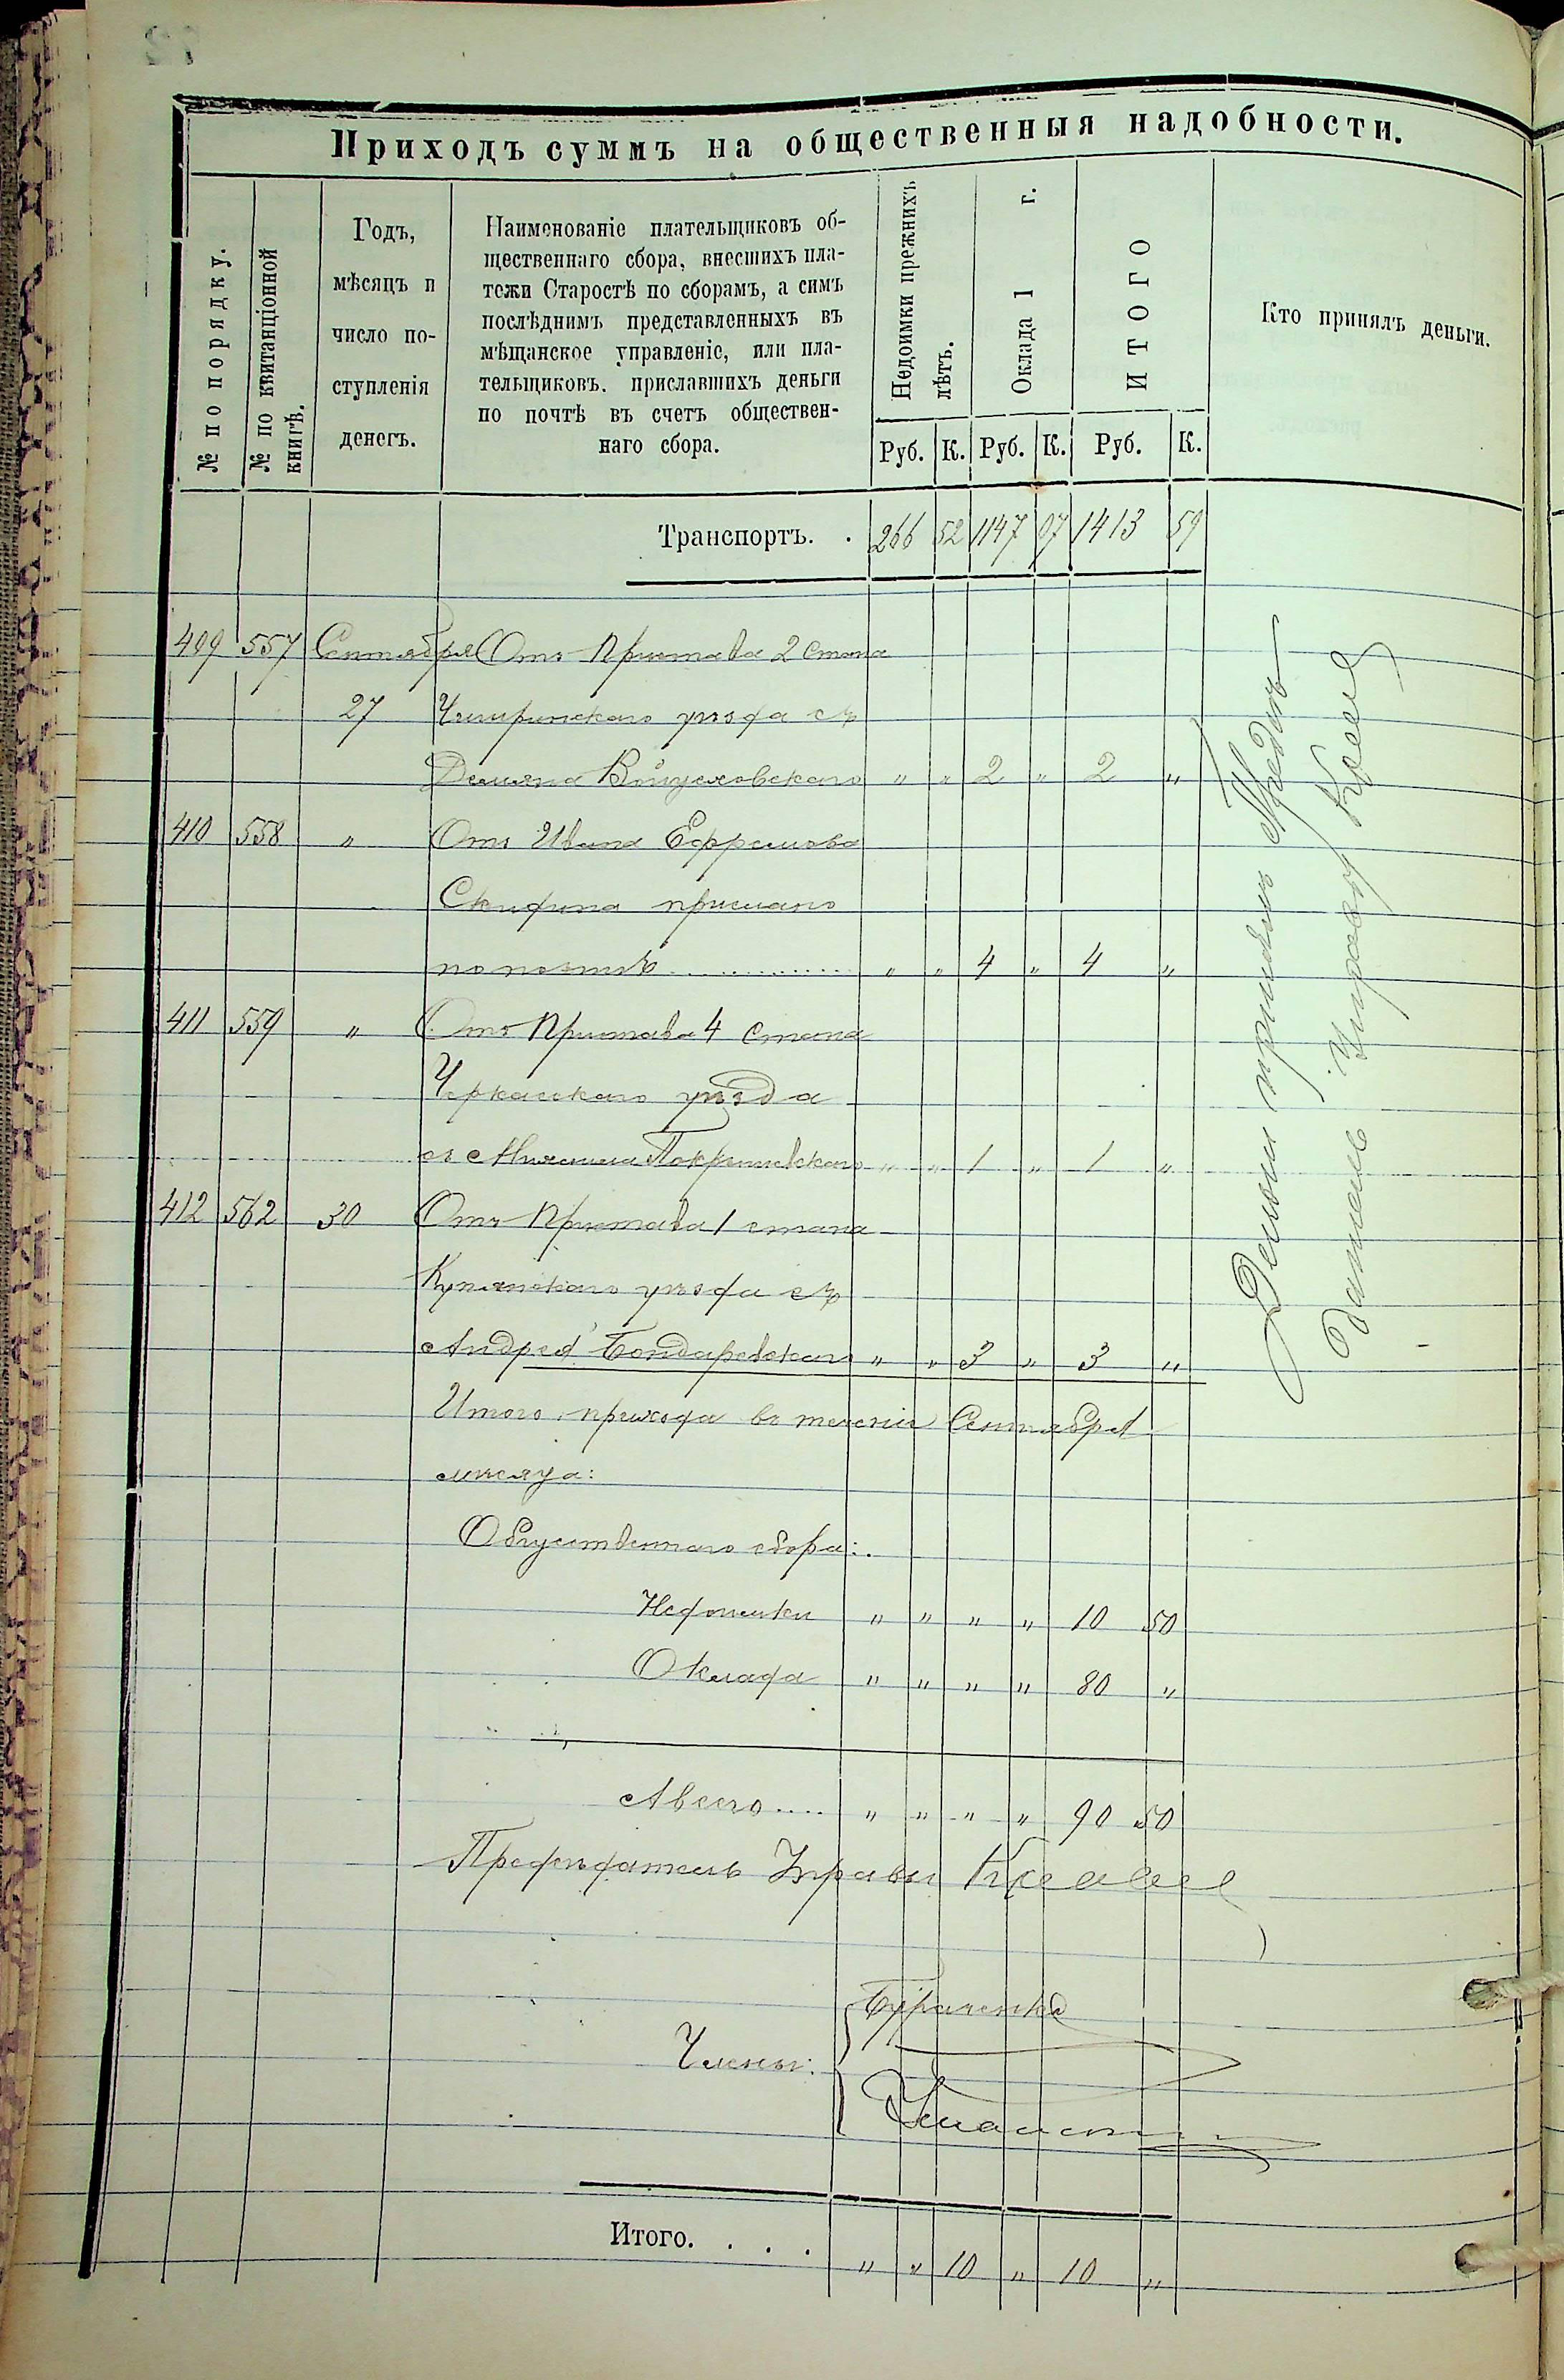 Приходъ суммъ на общественныя надобности.
№ по порядку.
№ по квитанціонной книгѣ.
Годъ,
мѣсяцъ и
число по-
ступленія
денегъ.
Наименованіе плательщиковъ об-
щественнаго сбора, внесшихъ пла-
тежи Старостѣ по сборамъ, а симъ
послѣднимъ представленныхъ въ
мѣщанское управленіе, или пла-
тельщиковъ. приславшихъ деньги
по почтѣ въ счетъ обществен-
наго сбора.
Недоимки прежнихъ
лѣтъ.
Оклада 1 г.
ИТОГО
Кто принялъ деньги.
Руб. К. Руб. К. Руб. К.
Транспортъ. . 266 52 1147 07 1413 59
409 557 Сентября Отъ Пристава 2 стана
27 Чигиринскаго уѣзда съ
Демьяна " " 2 " 2 "
410 558 " Отъ Ивана Ефремова
Скидина прислано
по почтѣ " " 4 " 4 "
411 559 " Отъ Пристава 4 стана
Черкасскаго уѣзда
съ " " 1 " 1 "
412 562 30 Отъ Пристава 1 стана
Купянскаго уѣзда съ
Андрея Бондаревскаго " " 3 " 3 "
Итого прихода въ теченіи Сентября
мѣсяца:
Общественнаго сбора:
Недоимки " " " " 10 50
Оклада " " " " 80 "
А всего.... " " " " 90 50
Предсѣдатель Управы
Члены:
Итого. . . . " " 10 " 10 "
Деньги принялъ Предсѣ-
датель Управы